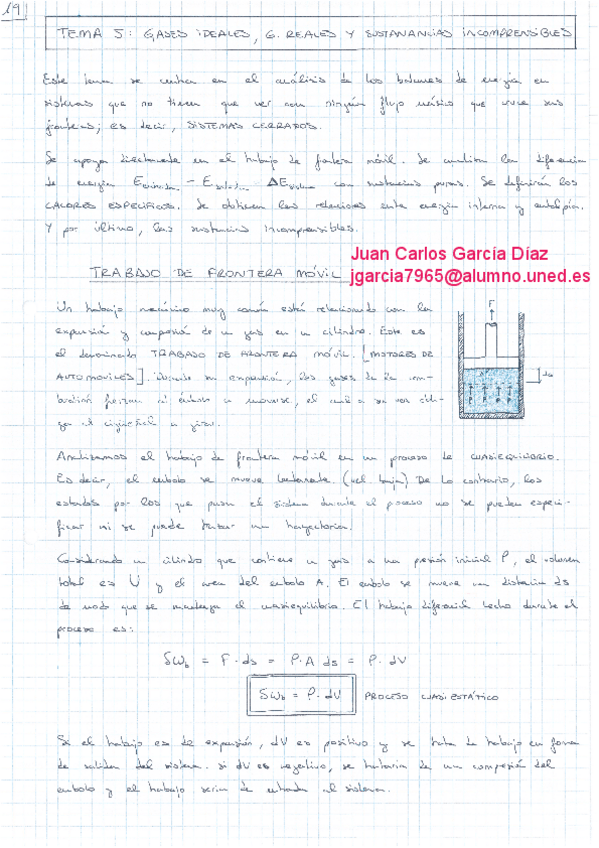 19
TEMA 5: GASES IDEALES, G. REALES Y SUSTANANCIAS INCOMPRENSIBLES
Este tema se centra en el análisis de los balances de energía en
sistemas que no tienen que ver con ningún flujo másico que cruce sus
fronteras; es decir, SISTEMAS CERRADOS.
Se apoya directamente en el trabajo de frontera móvil. Se analizan la diferencia
de energía Eentrada - Esalida = ΔEsistema con sustancias puras. Se definirán los
CALORES ESPECÍFICOS. Se obtienen las relaciones entre energía interna y entalpía.
Y por último, las sustancias incompresibles.
Juan Carlos García Díaz
jgarcia7965@alumno.uned.es
TRABAJO DE FRONTERA MÓVIL
Un trabajo mecánico muy común está relacionado con la
expansión y compresión de un gas en un cilindro. Este es
el denominado TRABAJO DE FRONTERA MÓVIL. [MOTORES DE
AUTOMOVILES]. Durante su expansión, los gases de la com-
bustión fuerzan al émbolo a moverse, el cual a su vez obli-
ga al cigüeñal a girar.
F
ds
P
Analizamos el trabajo de frontera móvil en un proceso de CUASIEQUILIBRIO.
Es decir, el embolo se mueve lentamente (vel. baja). De lo contrario, los
estados por los que pasa el sistema durante el proceso no se pueden especi-
ficar ni se puede trazar una trayectoria.
Considerando un cilindro que contiene un gas a una presión inicial P, el volumen
total es V y el area del embolo A. El embolo se mueve una distancia ds
de modo que se mantenga el cuasiequilibrio. El trabajo diferencial hecho durante el
proceso es:
δWb = F · ds = P·A ds = P · dV
δWb = P· dV PROCESO CUASIESTÁTICO
Si el trabajo es de expansión, dV es positivo y se trata de trabajo en forma
de salida del sistema. Si dV es negativo, se trataria de una compresión del
embolo y el trabajo seria de entrada al sistema.